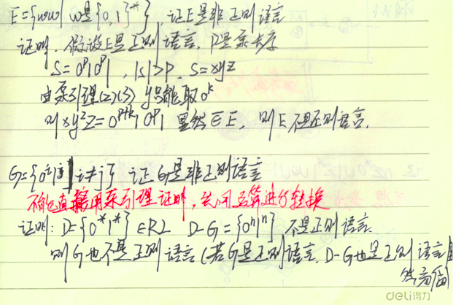 E={ww| w是{0,1}*}, 证E是非正则语言
证明, 假设E是正则语言, P是泵长度
S=0ᵖ10ᵖ1, |S|>P, S=xyz
由泵引理(2)(3) y只能取0ᵏ
则xy²z=0ᵖ⁺ᵏ10ᵖ1 显然∈E, 则E不是正则语言.
G={0ⁱ1ʲ| i≠j} 证G是非正则语言
不能直接用泵引理证明, 运算进行转换
证明: D={0*1*}∈RL D-G={0ⁿ1ⁿ}, 不是正则语言
则G也不是正则语言(若G是正则语言, D-G也是正则语言
deli得力